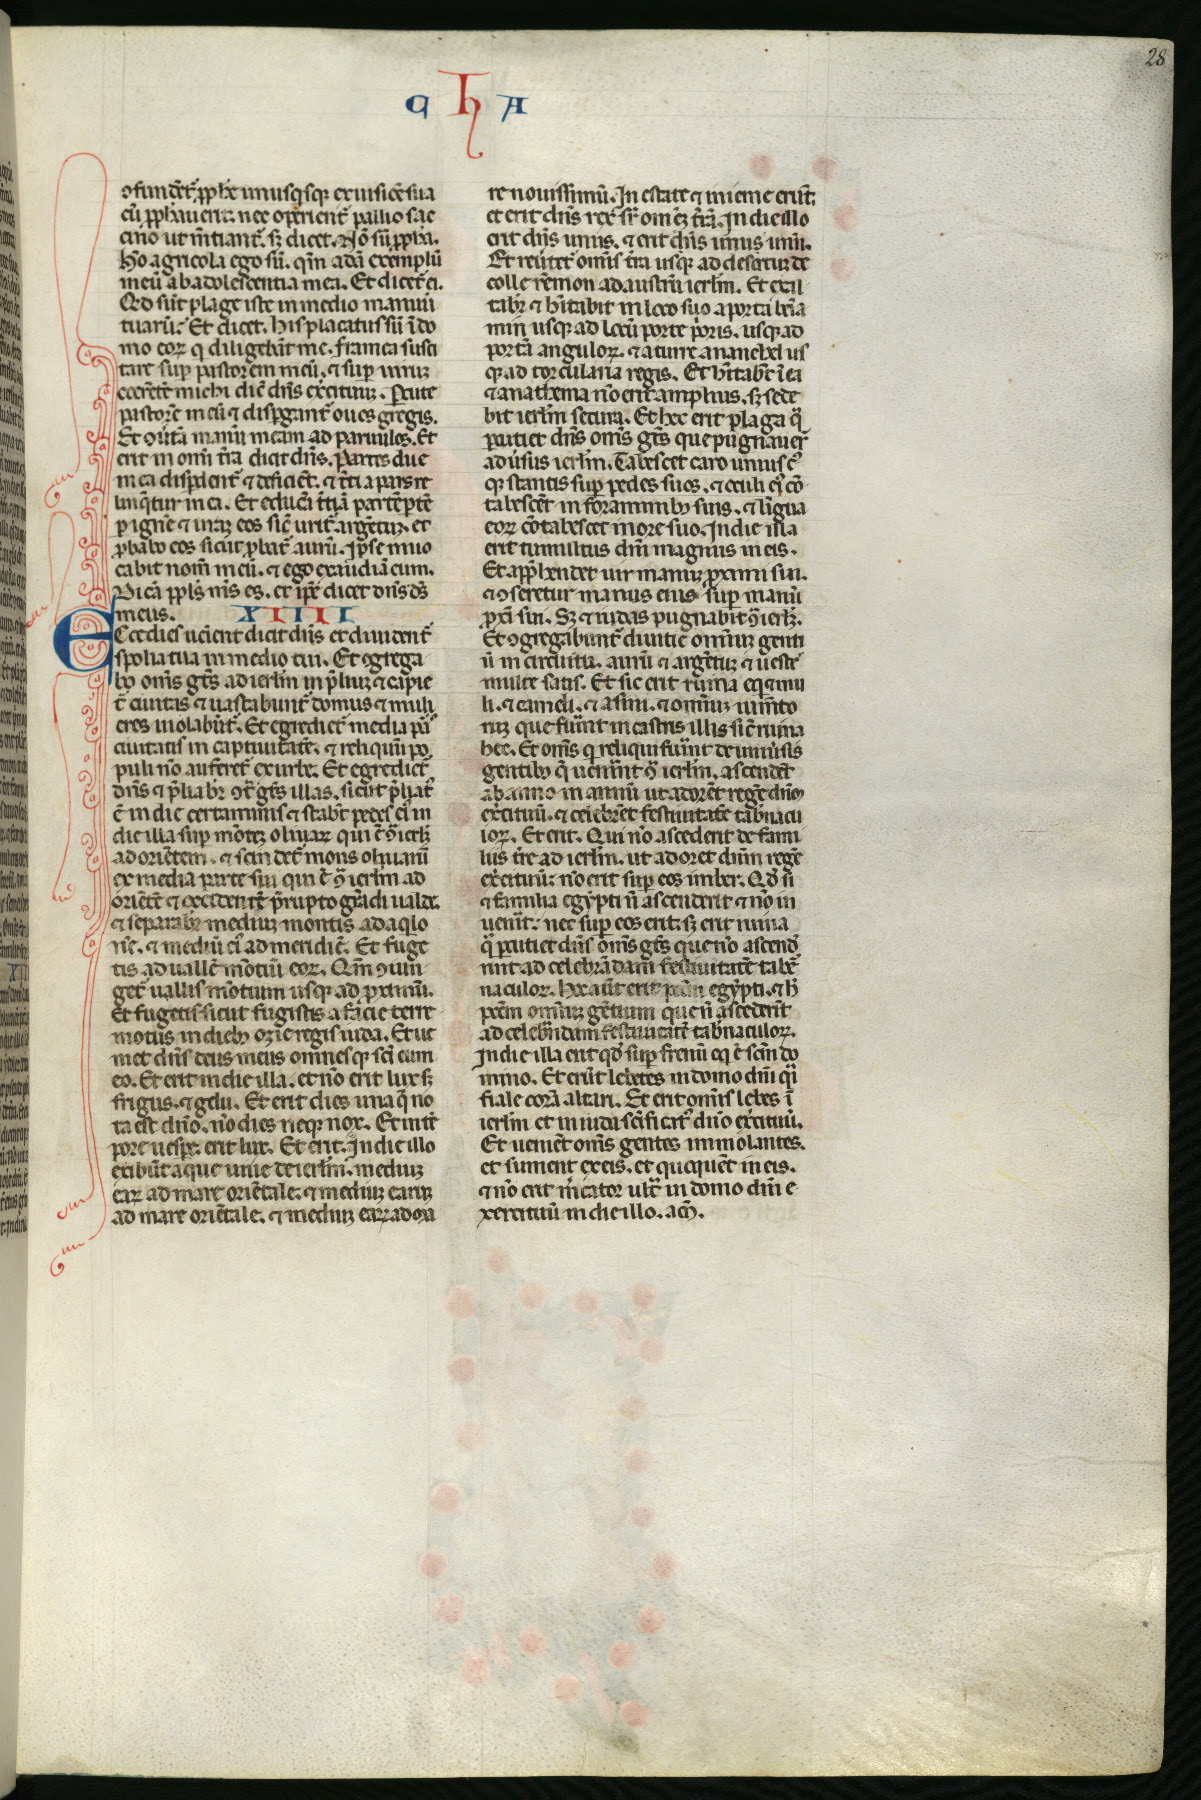 28
C H A
ꝯfundēt͛ ꝓph̄e unusq̄sqꝫ ex uisiōe sua
cū ꝓph̄auerit. nec operient͛ pallio sac
cino ut m̄tiant͛. sꝫ dicet. Nō sū ꝓph̄a.
hō agricola ego sū. qm̄ adā exemplū
meū ab adolescentia mea. Et dicet͛ ei.
Qd̄ sūt plage iste in medio manuū
tuarū. Et dicet. His placatus sū ī do
mo eoꝝ q̄ diligebāt me. framea susci
tare suꝑ pastorem meū. ⁊ suꝑ uirūꝫ
coerētē michi dic̄ dn̄s ex̄cituū. Pcute
pastorē meū ⁊ disꝑgant͛ oues gregis.
Et ꝯuertā manū meam ad paruulos. Et
erit in om̄i t̄ra dicit dn̄s. Partes due
in ea disꝑdent͛ ⁊ deficiēt. ⁊ t̄tia pars re
linq̄tur in ea. Et educā t̄tiā partē ꝑ
ꝑ ignē ⁊ urā eos sic̄ urit͛ argētūꝫ. et
ꝓbabo eos sicut ꝓbat͛ aurū. Ipse inuo
cabit nom̄ meū. ⁊ ego exaudiā eum.
Dicā ppl̄s m̄s es. et ip̄e dicet dn̄s d̄s
meus. XIIII
Ecce dies ueient dicit dn̄s et diuident͛
spolia tua in medio tui. Et ꝯgrega
bo om̄s gt̄s ad ierl̄m in p̄liūꝫ ⁊ capie
t͛ ciuitas ⁊ uastabunt͛ domus ⁊ muli
eres uiolabūt͛. Et egrediet͛ media ps̄
ciuitatis in captiuitatē. ⁊ reliquū po
puli nō auferet͛ ex urbe. Et egrediet͛
dn̄s ⁊ p̄liabit͛ ꝯt͛ gt̄s illas. sicut p̄liat͛
ē in die certaminis ⁊ stabūt pedes ei͛ in
die illa suꝑ mōtēꝫ oliuaꝝ qui ē ꝯ̄ ierl̄ꝫ
ad orientem. ⁊ scindet͛ mons oliuarū
ex media parte sui qui ē ꝯ̄ ierl̄m ad
oriētē ⁊ occidentē p̄rupto grādi ualde.
⁊ separabit͛ mediūꝫ montis ad aqilo
nē. ⁊ mediū ei͛ ad meridiē. Et fuge
tis ad uallē mōtiū eoꝝ. Qm̄ ꝯiun
get͛ uallis mōtium usqꝫ ad ꝓximū.
Et fugietis sicut fugistis a facie terre
motus in diebꝫ ozie regis iuda. Et ue
niet dn̄s deus meus omnesqꝫ sc̄i cum
eo. Et erit in die illa. et nō erit lux sꝫ
frigus. ⁊ gelu. Et erit dies una q̄ no
ta est dn̄o. nō dies neqꝫ nox. Et in t̄
pore uesꝑe erit lux. Et erit. In die illo
exibūt aque uiue de ierl̄m. mediūꝫ
eaꝝ ad mare oriētale. ⁊ mediūꝫ earūꝫ
ad mare oriētale. ⁊ mediūꝫ eaꝝ ad ma
re nouissimū. In estate ⁊ in ieme erūt.
et erit dn̄s rex sr̄ om̄eꝫ t̄rā. In die illo
erit dn̄s unus. ⁊ erit dn̄s unus unū.
Et reūtet͛ om̄is t̄ra usqꝫ ad desertūꝫ de
colle remon ad austrū ierl̄m. Et exal
tabit͛ ⁊ hītabit in loco suo a porta benia
min usqꝫ ad locū porte p̄oris. usqꝫ ad
portā anguloꝝ. ⁊ a turre ananehel us
qꝫ ad torcularia regis. Et hītabūt ī ea
⁊ anathema nō erit amplius. sꝫ sede
bit ierl̄m secura. Et hec erit plaga q̄
ꝑcutiet dn̄s om̄s gt̄s que pugnauer͛
aduīsus ierl̄m. Tabescet caro uniusc͛
qꝫ stantis suꝑ pedes suos. ⁊ oculi ei͛ cō
tabescēt in foraminibꝫ suis. ⁊ lingua
eoꝝ cōtabescet in ore suo. In die illa
erit tumultus dn̄i magnus in eis.
Et app̄hendet uir manūꝫ ꝓximi sui.
⁊ ꝯseretur manus eius suꝑ manū
ꝓxi sui. Sꝫ ⁊ iudas pugnabit ꝯ̄ ierl̄ꝫ.
Et ꝯgregabunt͛ diuitie omniūꝫ genti
ū in circuitu. aurū ⁊ argētūꝫ ⁊ ueste
multe satis. Et sic erit ruina eq̄ ⁊ mu
li. ⁊ cameli. ⁊ asini. ⁊ omniūꝫ iumēto
rūꝫ que fūint in castris illis sic̄ ruina
hec. Et om̄s q̄ reliqui fuīnt de uniūsis
gentibꝫ q̄ uen̄unt ꝯ̄ ierl̄m. ascendēt
ab anno in annū ut adorēt regē dn̄m
ex̄cituū. ⁊ celebrēt festiuitatē tab̄nacu
loꝝ. Et erit. Qui nō ascēdent de fami
liis t̄re ad ierl̄m. ut adoret dn̄m regē
ex̄cituū. nō erit suꝑ eos imber. Qd̄ si
⁊ familia egypti n̄ ascenderit ⁊ nō in
uen̄it. nec suꝑ eos erit. sꝫ erit ruina
q̄ ꝑcutiet dn̄s om̄s gt̄s que nō ascend͛
rint ad celebrādam festiuitatē tabē
naculoꝝ. Hoc aut̄ erit pcc̄m egypti. ⁊ h̄
pcc̄m omniūꝫ gētium que n̄ ascēderīt
ad celebrādam festiuitatē tab̄naculoꝝ.
In die illa erit qd̄ suꝑ frenū eq̄ ē sc̄m do
mino. Et erūt lebetes in domo dn̄i q̄i
fiale corā altari. Et erit om̄is lebes ī
ierl̄m et in iuda sc̄ificat͛ dn̄o ex̄cituū.
Et uenient om̄s gentes immolantes.
et sument ex eis. et quoquēt in eis.
⁊ nō erit m̄cator ult͛ in domo dn̄i e
xercituū in die illo. am̄.